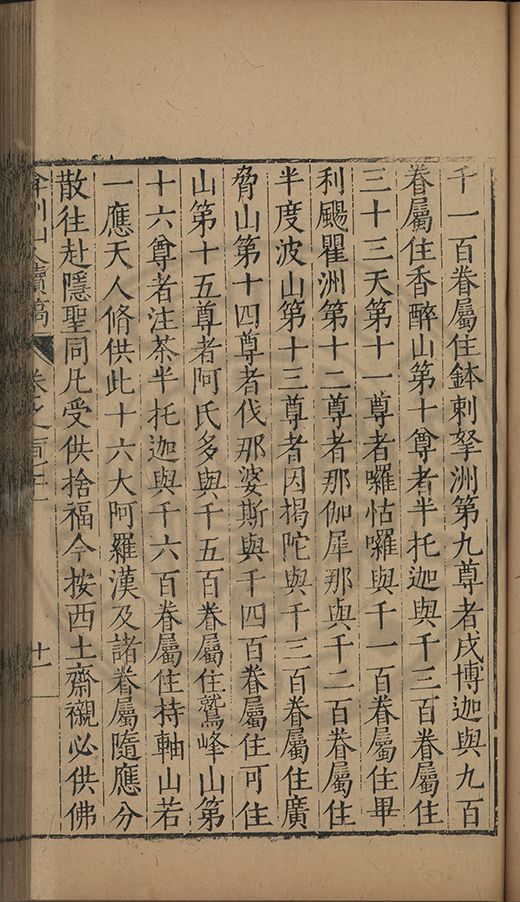 千一百眷屬住鉢剌拏洲第九尊者戌博迦與九百
眷屬住香醉山第十尊者半托迦與千三百眷屬住
三十三天第十一尊者囉怙囉與千一百眷屬住畢
利颺瞿洲第十二尊者那伽犀那與千二百眷屬住
半度波山第十三尊者因揭陀與千三百眷屬住廣
脅山第十四尊者伐那婆斯與千四百眷屬住可住
山第十五尊者阿氏多與千五百眷屬住鷲峰山第
十六尊者注茶半托迦與千六百眷屬住持軸山若
一應天人脩供此十六大阿羅漢及諸眷屬隨應分
散往赴隱聖同凡受供捨福今按西土齋襯必供佛
弇州山人續稿 卷之 十一